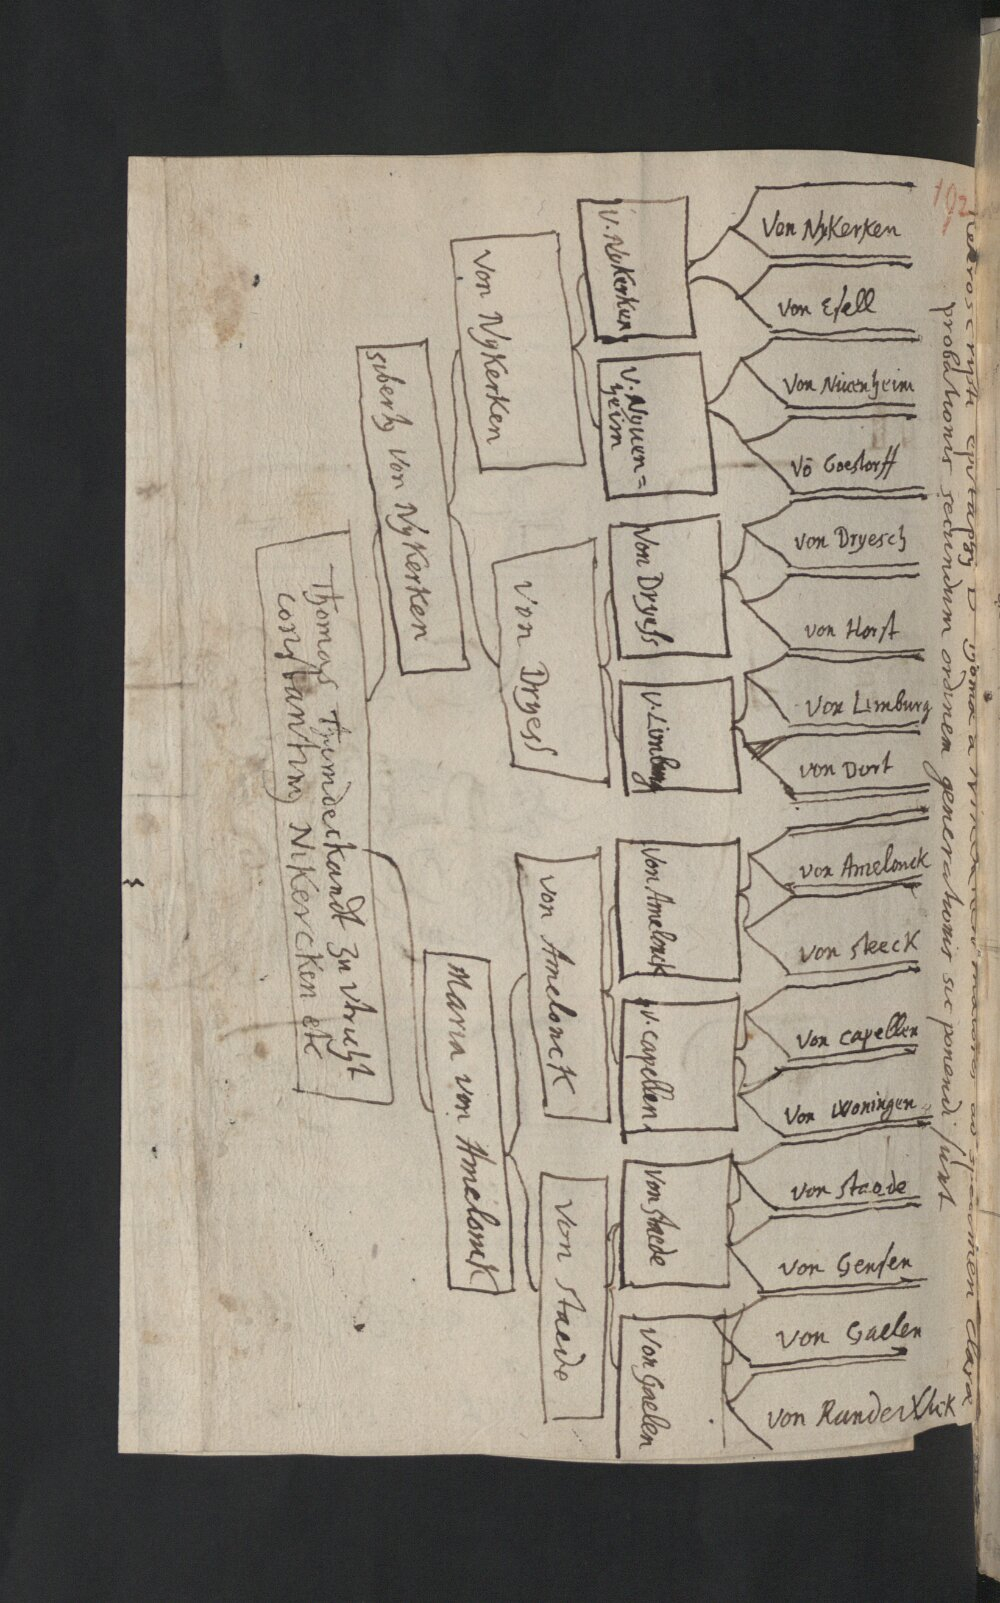 192
probationis secundum ordinem generationis sic ponendi sunt
Von Nykerken
von Esell
von Nivenheim
vō Goestorff
von Dryesch
von Horst
von Limburg
von Dort
von Amelonck
von steeck
von capellen
von woningen
von staede
von Gensen
von Gaelen
von Runder
v. Nykerken
v. Nyven=
heim
Von Dryess
v. Limburg
von Amelonck
v. capellen
von staede
von Gaelen
von Nykerken
von Dryess
von Amelonck
von staede
sibert von Nykerken
Maria von Amelonck
Thomas zu utricht
Nikercken etc